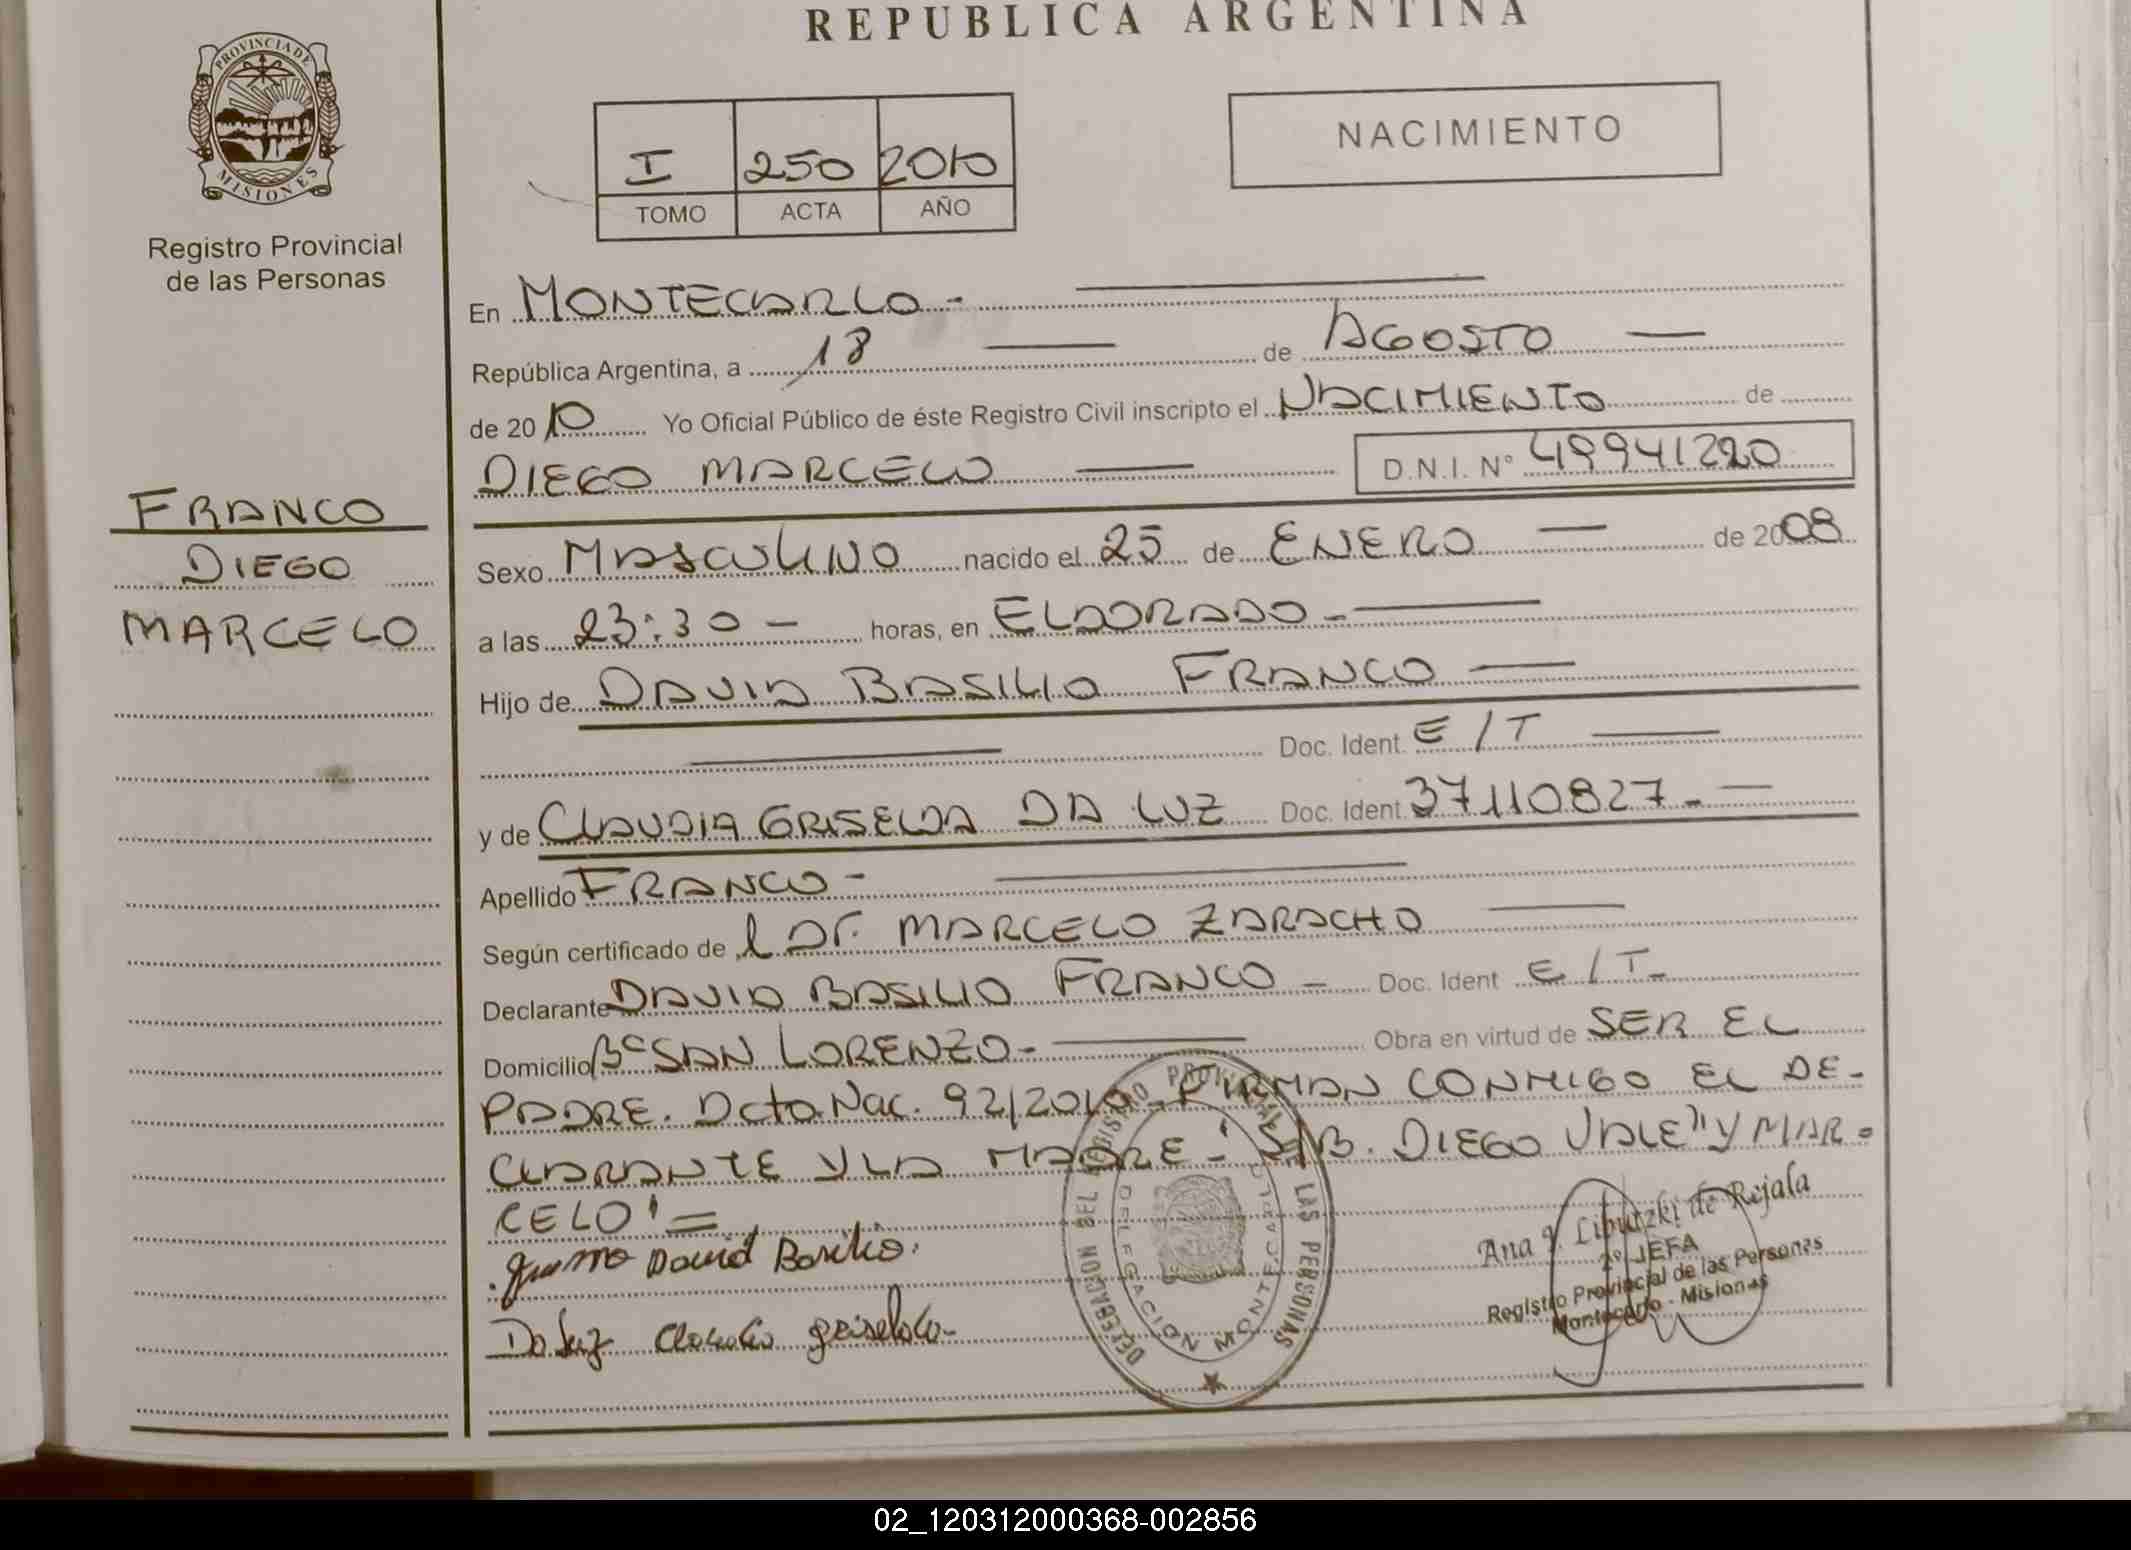 REPUBLICA ARGENTINA
PROVINCIA DE MISIONES
Registro Provincial
de las Personas
I 250 2010
TOMO ACTA AÑO
NACIMIENTO
En MONTECARLO -
República Argentina, a 18 de AGOSTO
de 2010 Yo Oficial Público de éste Registro Civil inscripto el NACIMIENTO de
DIEGO MARCELO D.N.I. N° 49941220
FRANCO
DIEGO
MARCELO
Sexo MASCULINO nacido el 25 de ENERO de 2008
a las 23:30 - horas, en ELDORADO -
Hijo de DAVID BASILIO FRANCO
Doc. Ident. E/T
y de CLAUDIA GRISELDA DA LUZ Doc. Ident. 37110827 -
Apellido FRANCO -
Según certificado de l DR. MARCELO ZARACHO
Declarante DAVID BASILIO FRANCO - Doc. Ident E/T-
Domicilio B° SAN LORENZO - Obra en virtud de SER EL
PADRE. Dcto. Nac. 92/2010 - FIRMAN CONMIGO EL DE-
CLARANTE Y LA MADRE - S/B. DIEGO VALE" Y MAR-
CELO" =
David Basilio.
Da Luz Claudia Griselda-
DELEGACION DEL REGISTRO PROVINCIAL DE LAS PERSONAS
DELEGACION MONTECARLO
de Rejala
2º JEFA
Registro Provincial de las Personas
Montecarlo - Misiones
02_120312000368-002856